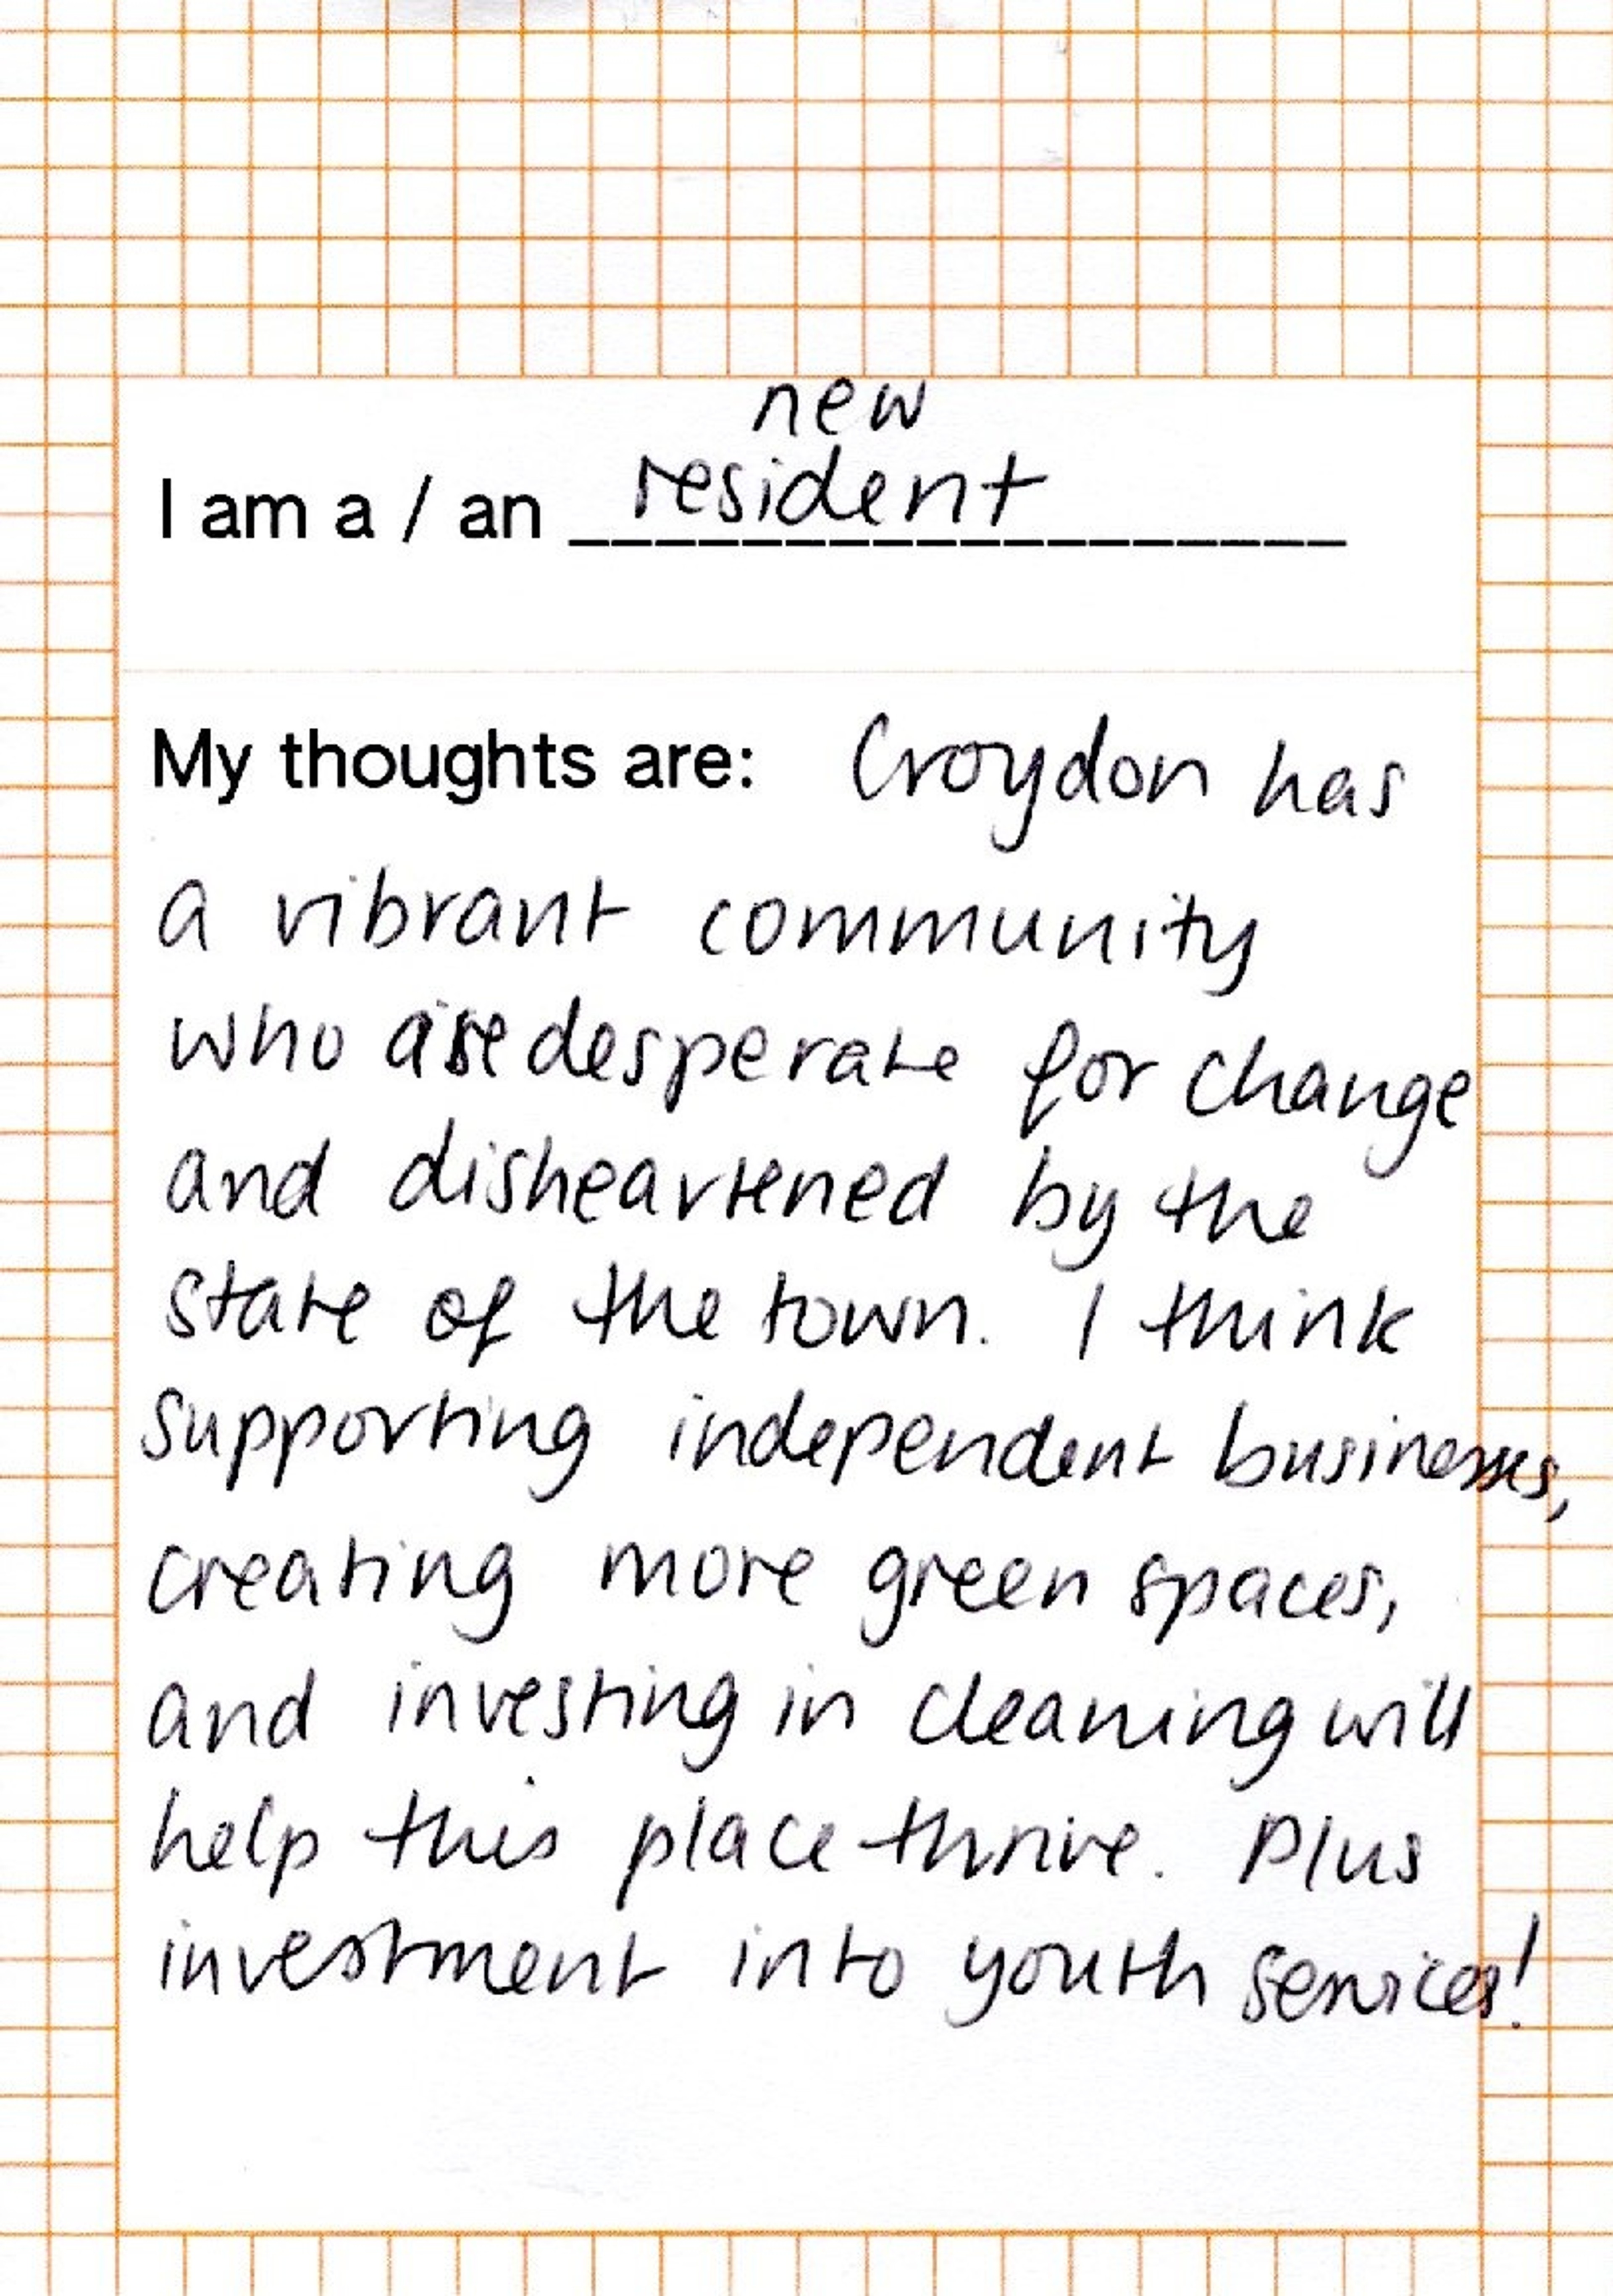 new
I am a / an resident
My thoughts are: Croydon has
a vibrant community
who are desperate for change
and disheartened by the
state of the town. I think
supporting independent businesses,
creating more green spaces,
and investing in cleaning will
help this place thrive. Plus
investment into youth services!